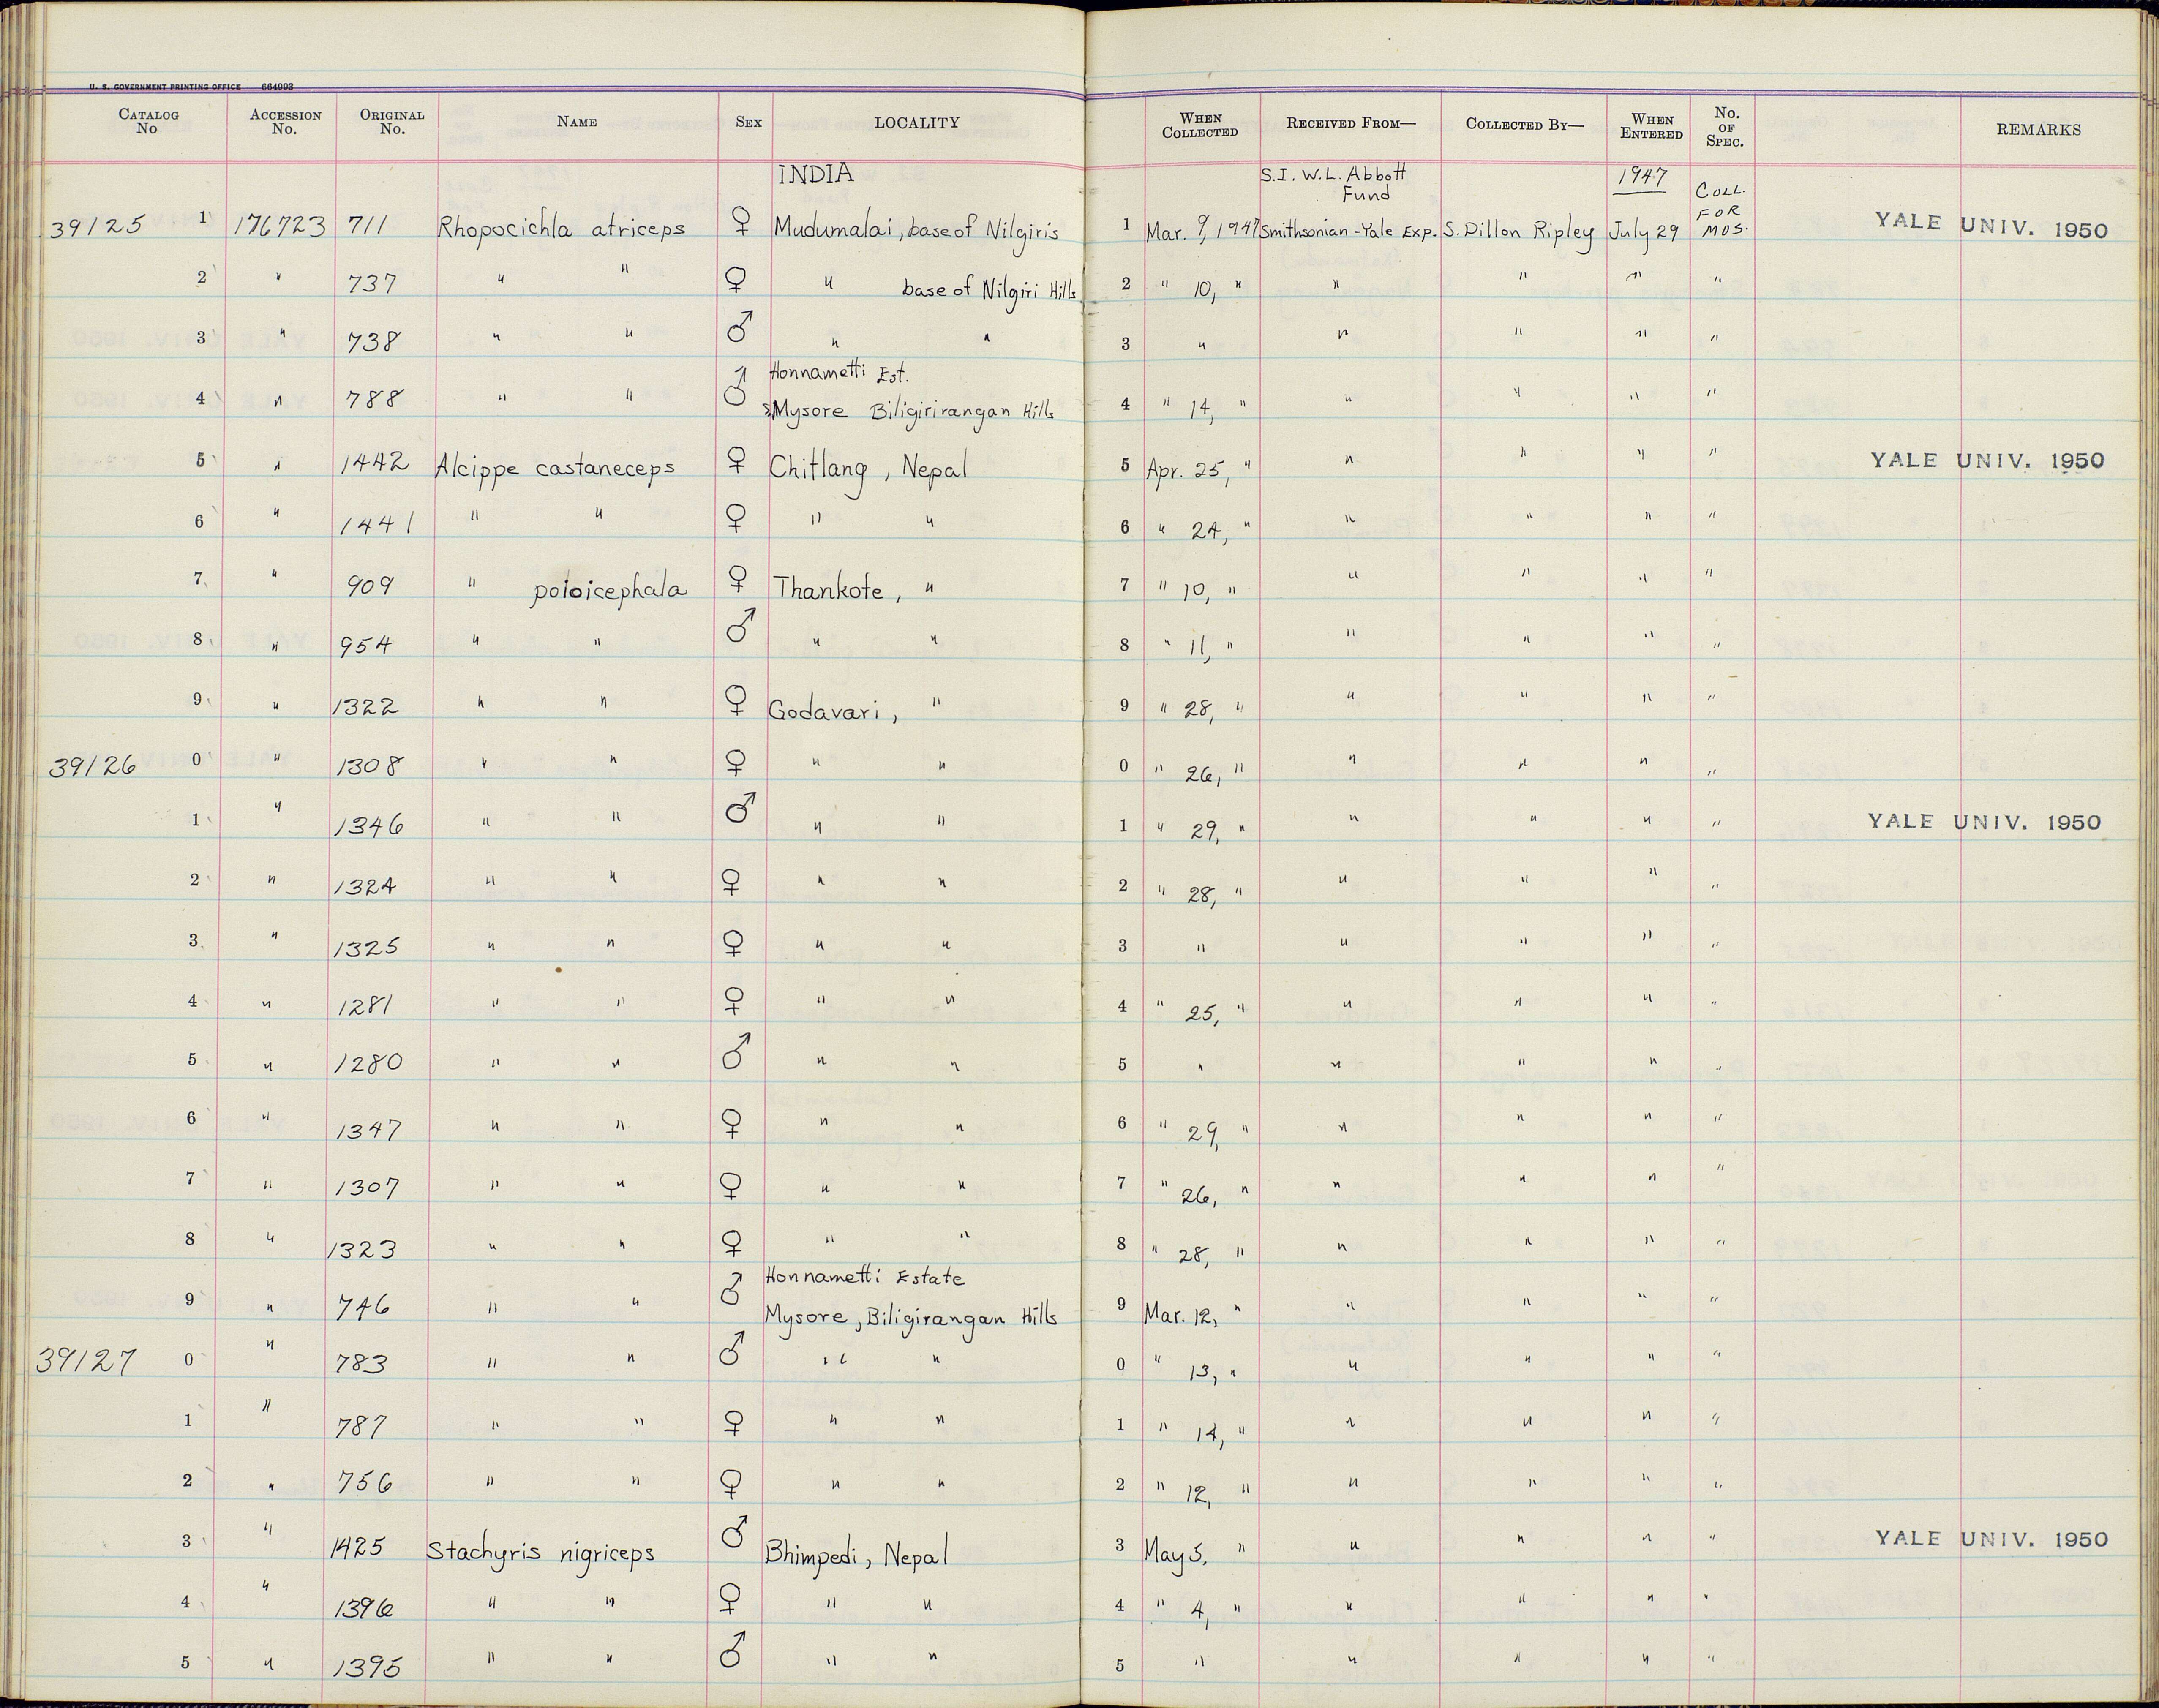 U. S. GOVERNMENT PRINTING OFFICE 664993
CATALOG No ACCESSION No. ORIGINAL No. NAME SEX LOCALITY WHEN COLLECTED RECEIVED FROM— COLLECTED BY— WHEN ENTERED No. OF SPEC. REMARKS
INDIA S.I. W.L. Abbott Fund 1947 COLL. FOR MUS.
39125 1 176723 711 Rhopocichla atriceps ♀ Mudumalai, base of Nilgiris 1 Mar. 9, 1947 Smithsonian-Yale Exp. S. Dillon Ripley July 29 YALE UNIV. 1950
2 " 737 " " ♀ " base of Nilgiri Hills 2 " 10, " " " " "
3 " 738 " " ♂ " " 3 " " " " "
Honnametti Est.
4 " 788 " " ♂ Mysore Biligirirangan Hills 4 " 14, " " " " "
5 " 1442 Alcippe castaneceps ♀ Chitlang, Nepal 5 Apr. 25, " " " " " YALE UNIV. 1950
6 " 1441 " " ♀ " " 6 " 24, " " " " "
7 " 909 " poioicephala ♀ Thankote, " 7 " 10, " " " " "
8 " 954 " " ♂ " " 8 " 11, " " " " "
9 " 1322 " " ♀ Godavari, " 9 " 28, " " " " "
39126 0 " 1308 " " ♀ " " 0 " 26, " " " " "
1 " 1346 " " ♂ " " 1 " 29, " " " " " YALE UNIV. 1950
2 " 1324 " " ♀ " " 2 " 28, " " " " "
3 " 1325 " " ♀ " " 3 " " " " "
4 " 1281 " " ♀ " " 4 " 25, " " " " "
5 " 1280 " " ♂ " " 5 " " " " "
6 " 1347 " " ♀ " " 6 " 29, " " " " "
7 " 1307 " " ♀ " " 7 " 26, " " " " "
8 " 1323 " " ♀ " " 8 " 28, " " " " "
Honnametti Estate
9 " 746 " " ♂ Mysore, Biligirangan Hills 9 Mar. 12, " " " " "
39127 0 " 783 " " ♂ " " 0 " 13, " " " " "
1 " 787 " " ♀ " " 1 " 14, " " " " "
2 " 756 " " ♀ " " 2 " 12, " " " " "
3 " 1425 Stachyris nigriceps ♂ Bhimpedi, Nepal 3 May 5, " " " " " YALE UNIV. 1950
4 " 1396 " " ♀ " " 4 " 4, " " " " "
5 " 1395 " " ♂ " " 5 " " " " "